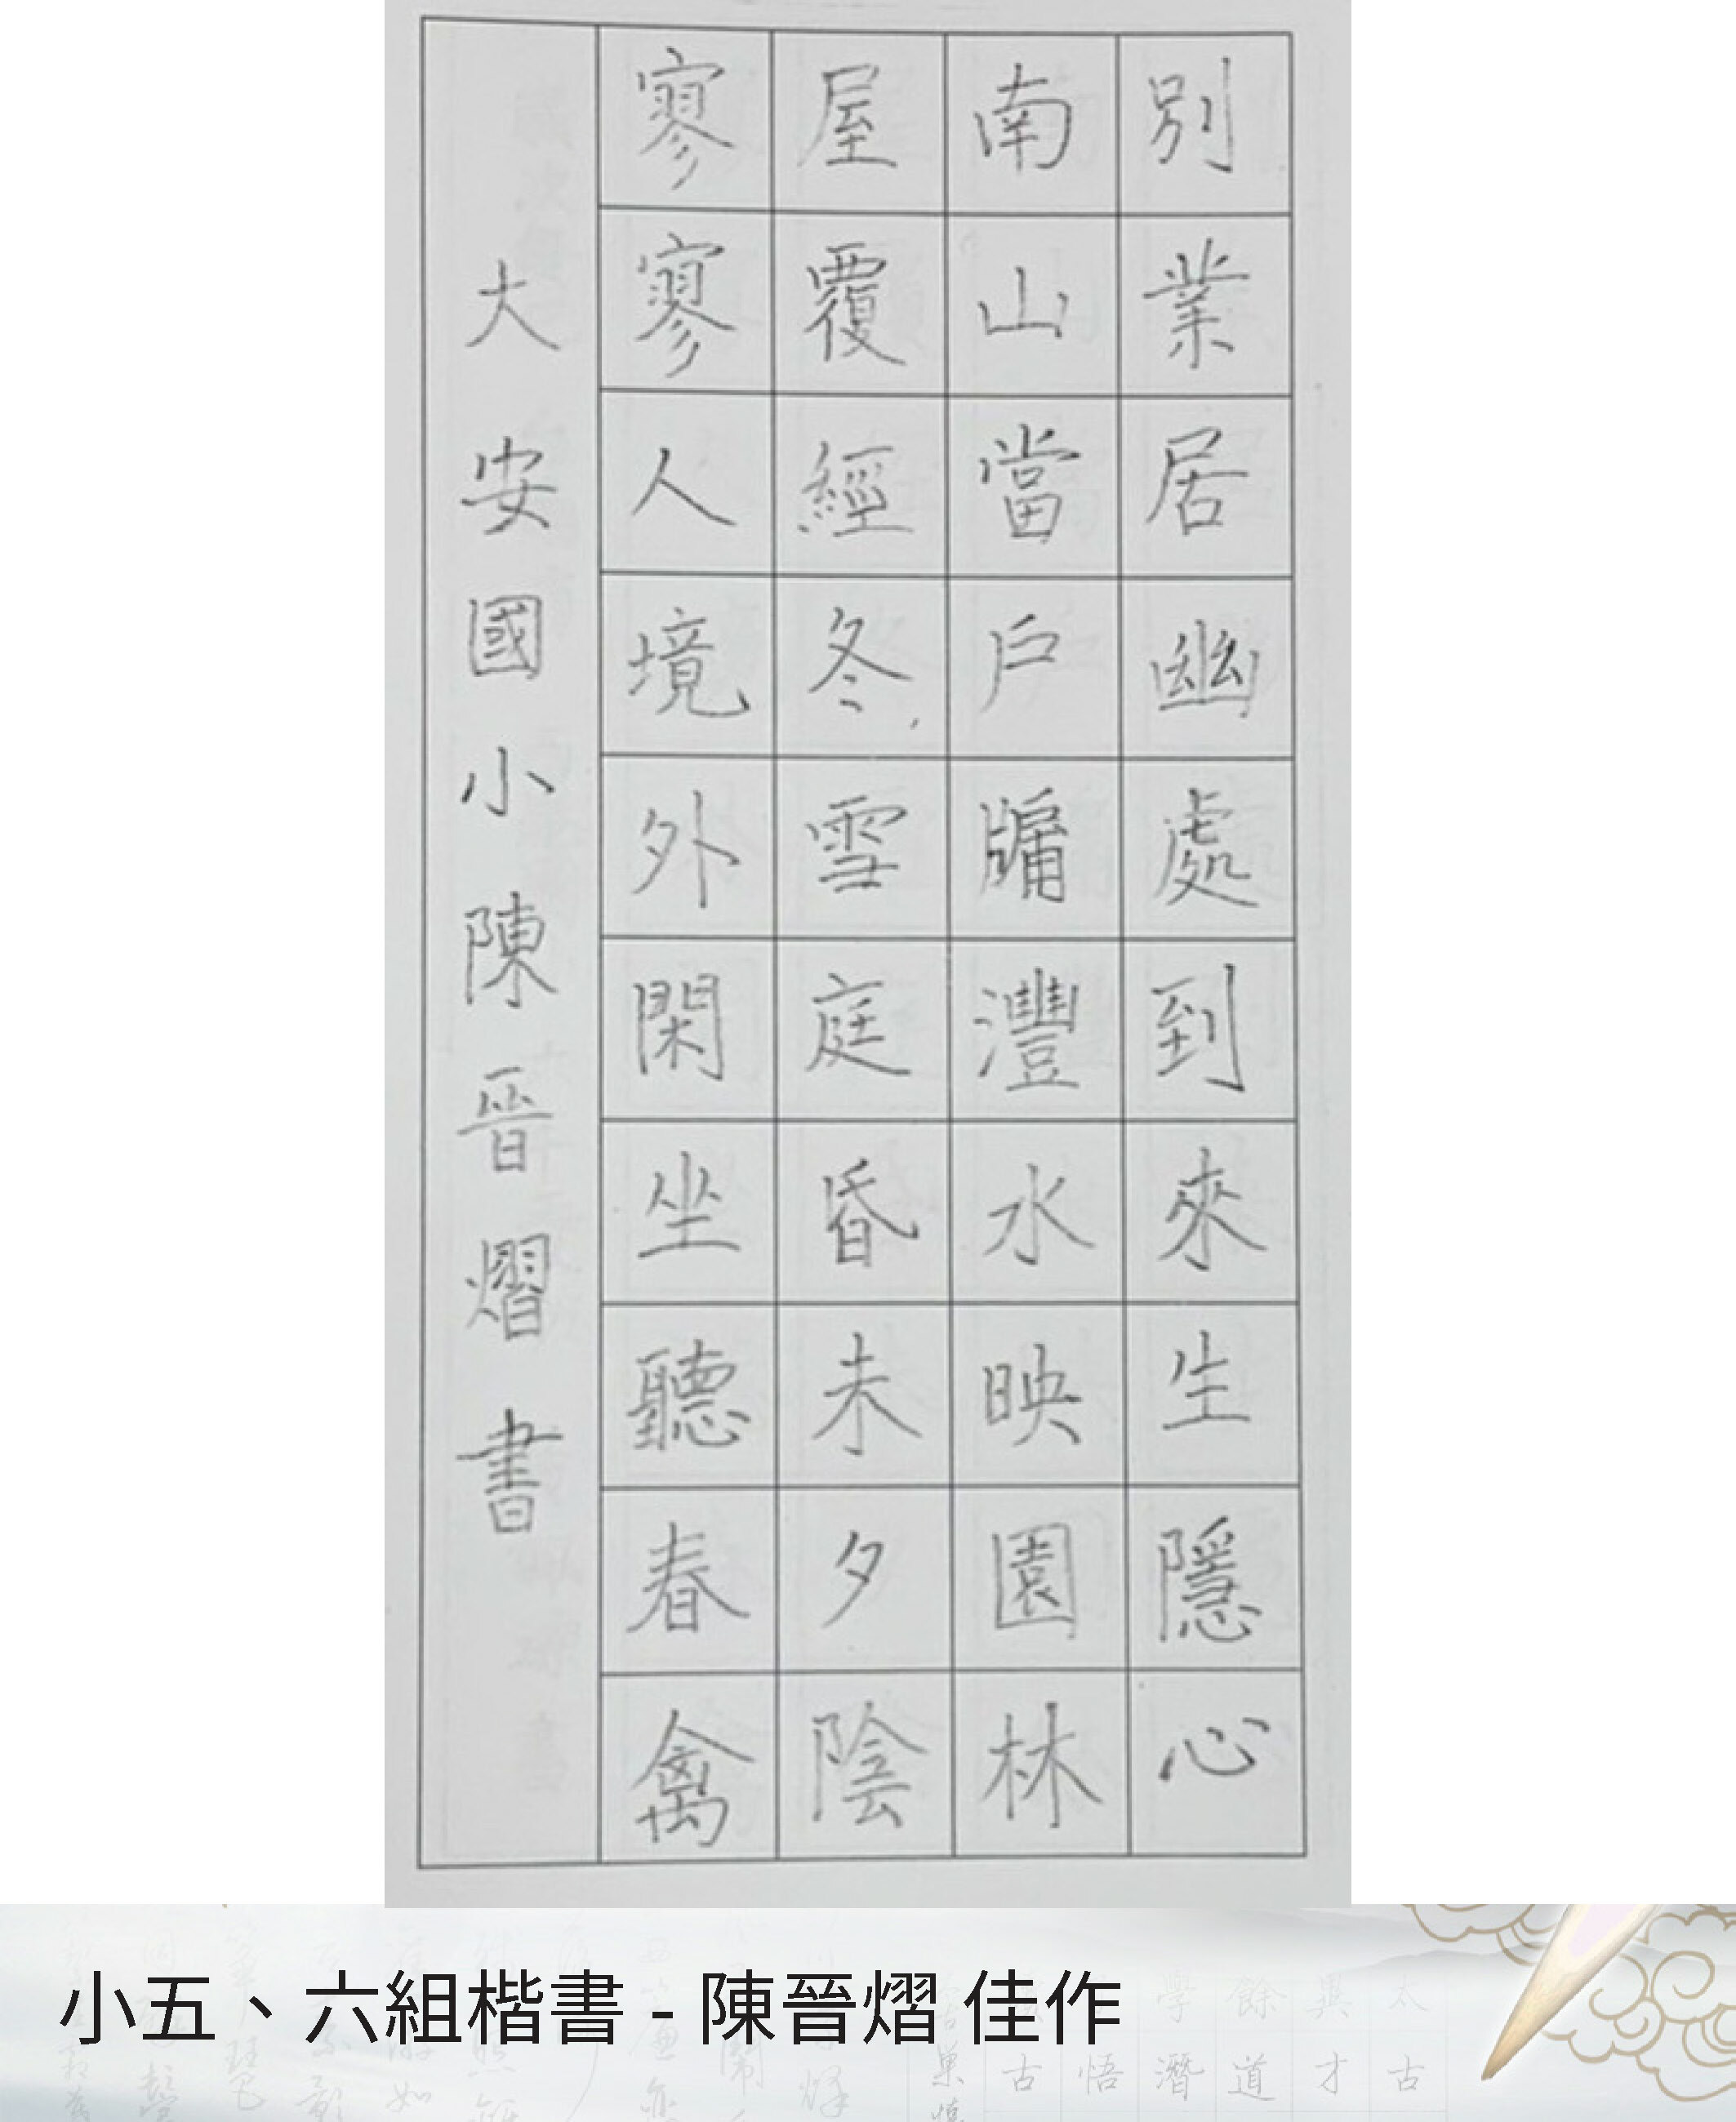 別業居幽處到來生隱心
南山當戶牖灃水映園林
屋覆經冬雪庭昏未夕陰
寥寥人境外閑坐聽春禽
大安國小陳晉熠書
小五、六組楷書 - 陳晉熠 佳作
學 餘 興 太
古 悟 潛 道 才 古